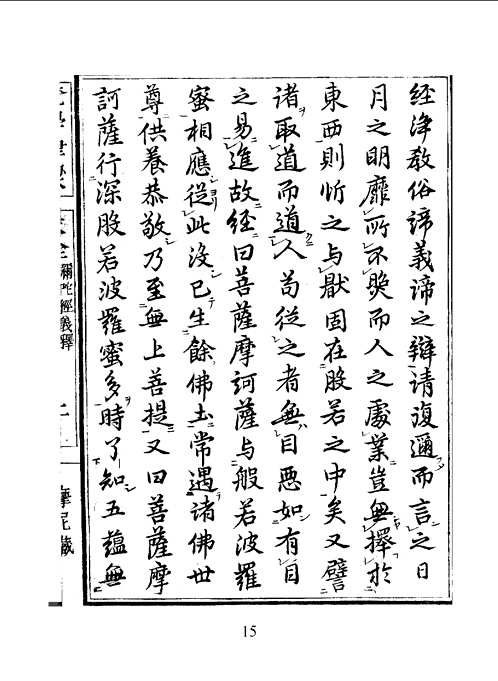 經淨教俗諦義諦之辯請復邇而言之日
月之明靡所不燭而人之處業豈無擇於
東西則忻之与猒固在般若之中矣又譬
諸取道而道人苟從之者無目惡如有目
之易進故經曰菩薩摩訶薩与般若波羅
蜜相應從此沒已生餘佛土常遇諸佛世
尊供養恭敬乃至無上菩提又曰菩薩摩
訶薩行深般若波羅蜜多時了知五蘊無
彌陀經義釋
15